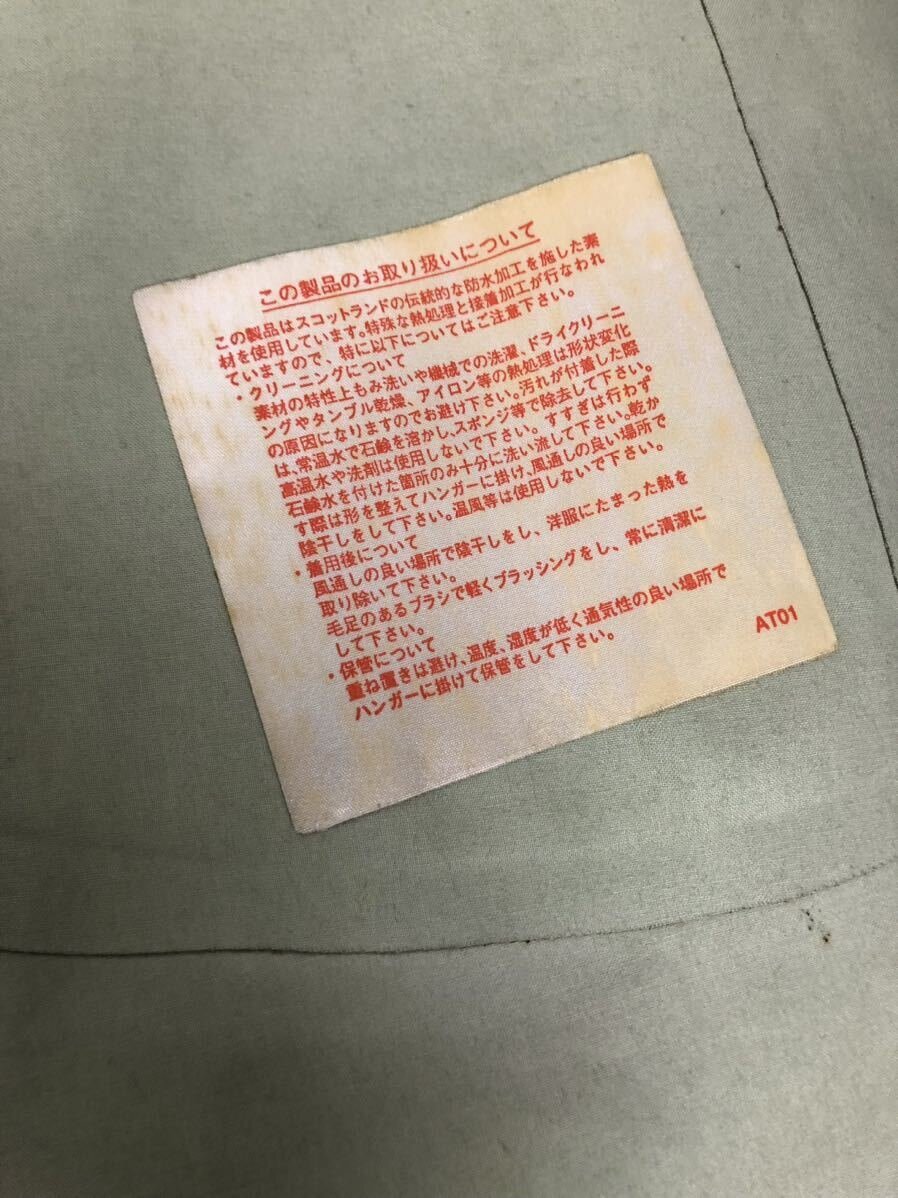 この製品のお取り扱いについて
この製品はスコットランドの伝統的な防水加工を施した素
材を使用しています。特殊な熱処理と接着加工が行なわれ
ていますので、特に以下についてはご注意下さい。
・クリーニングについて
素材の特性上もみ洗いや機械での洗濯、ドライクリーニ
ングやタンブル乾燥、アイロン等の熱処理は形状変化
の原因になりますのでお避け下さい。汚れが付着した際
は、常温水で石鹸を溶かし、スポンジ等で除去して下さい。
高温水や洗剤は使用しないで下さい。すすぎは行わず
石鹸水を付けた箇所のみ十分に洗い流して下さい。乾か
す際は形を整えてハンガーに掛け、風通しの良い場所で
陰干しをして下さい。温風等は使用しないで下さい。
・着用後について
風通しの良い場所で陰干しをし、洋服にたまった熱を
取り除いて下さい。
毛足のあるブラシで軽くブラッシングをし、常に清潔に
して下さい。
・保管について
重ね置きは避け、温度、湿度が低く通気性の良い場所で
ハンガーに掛けて保管をして下さい。
AT01